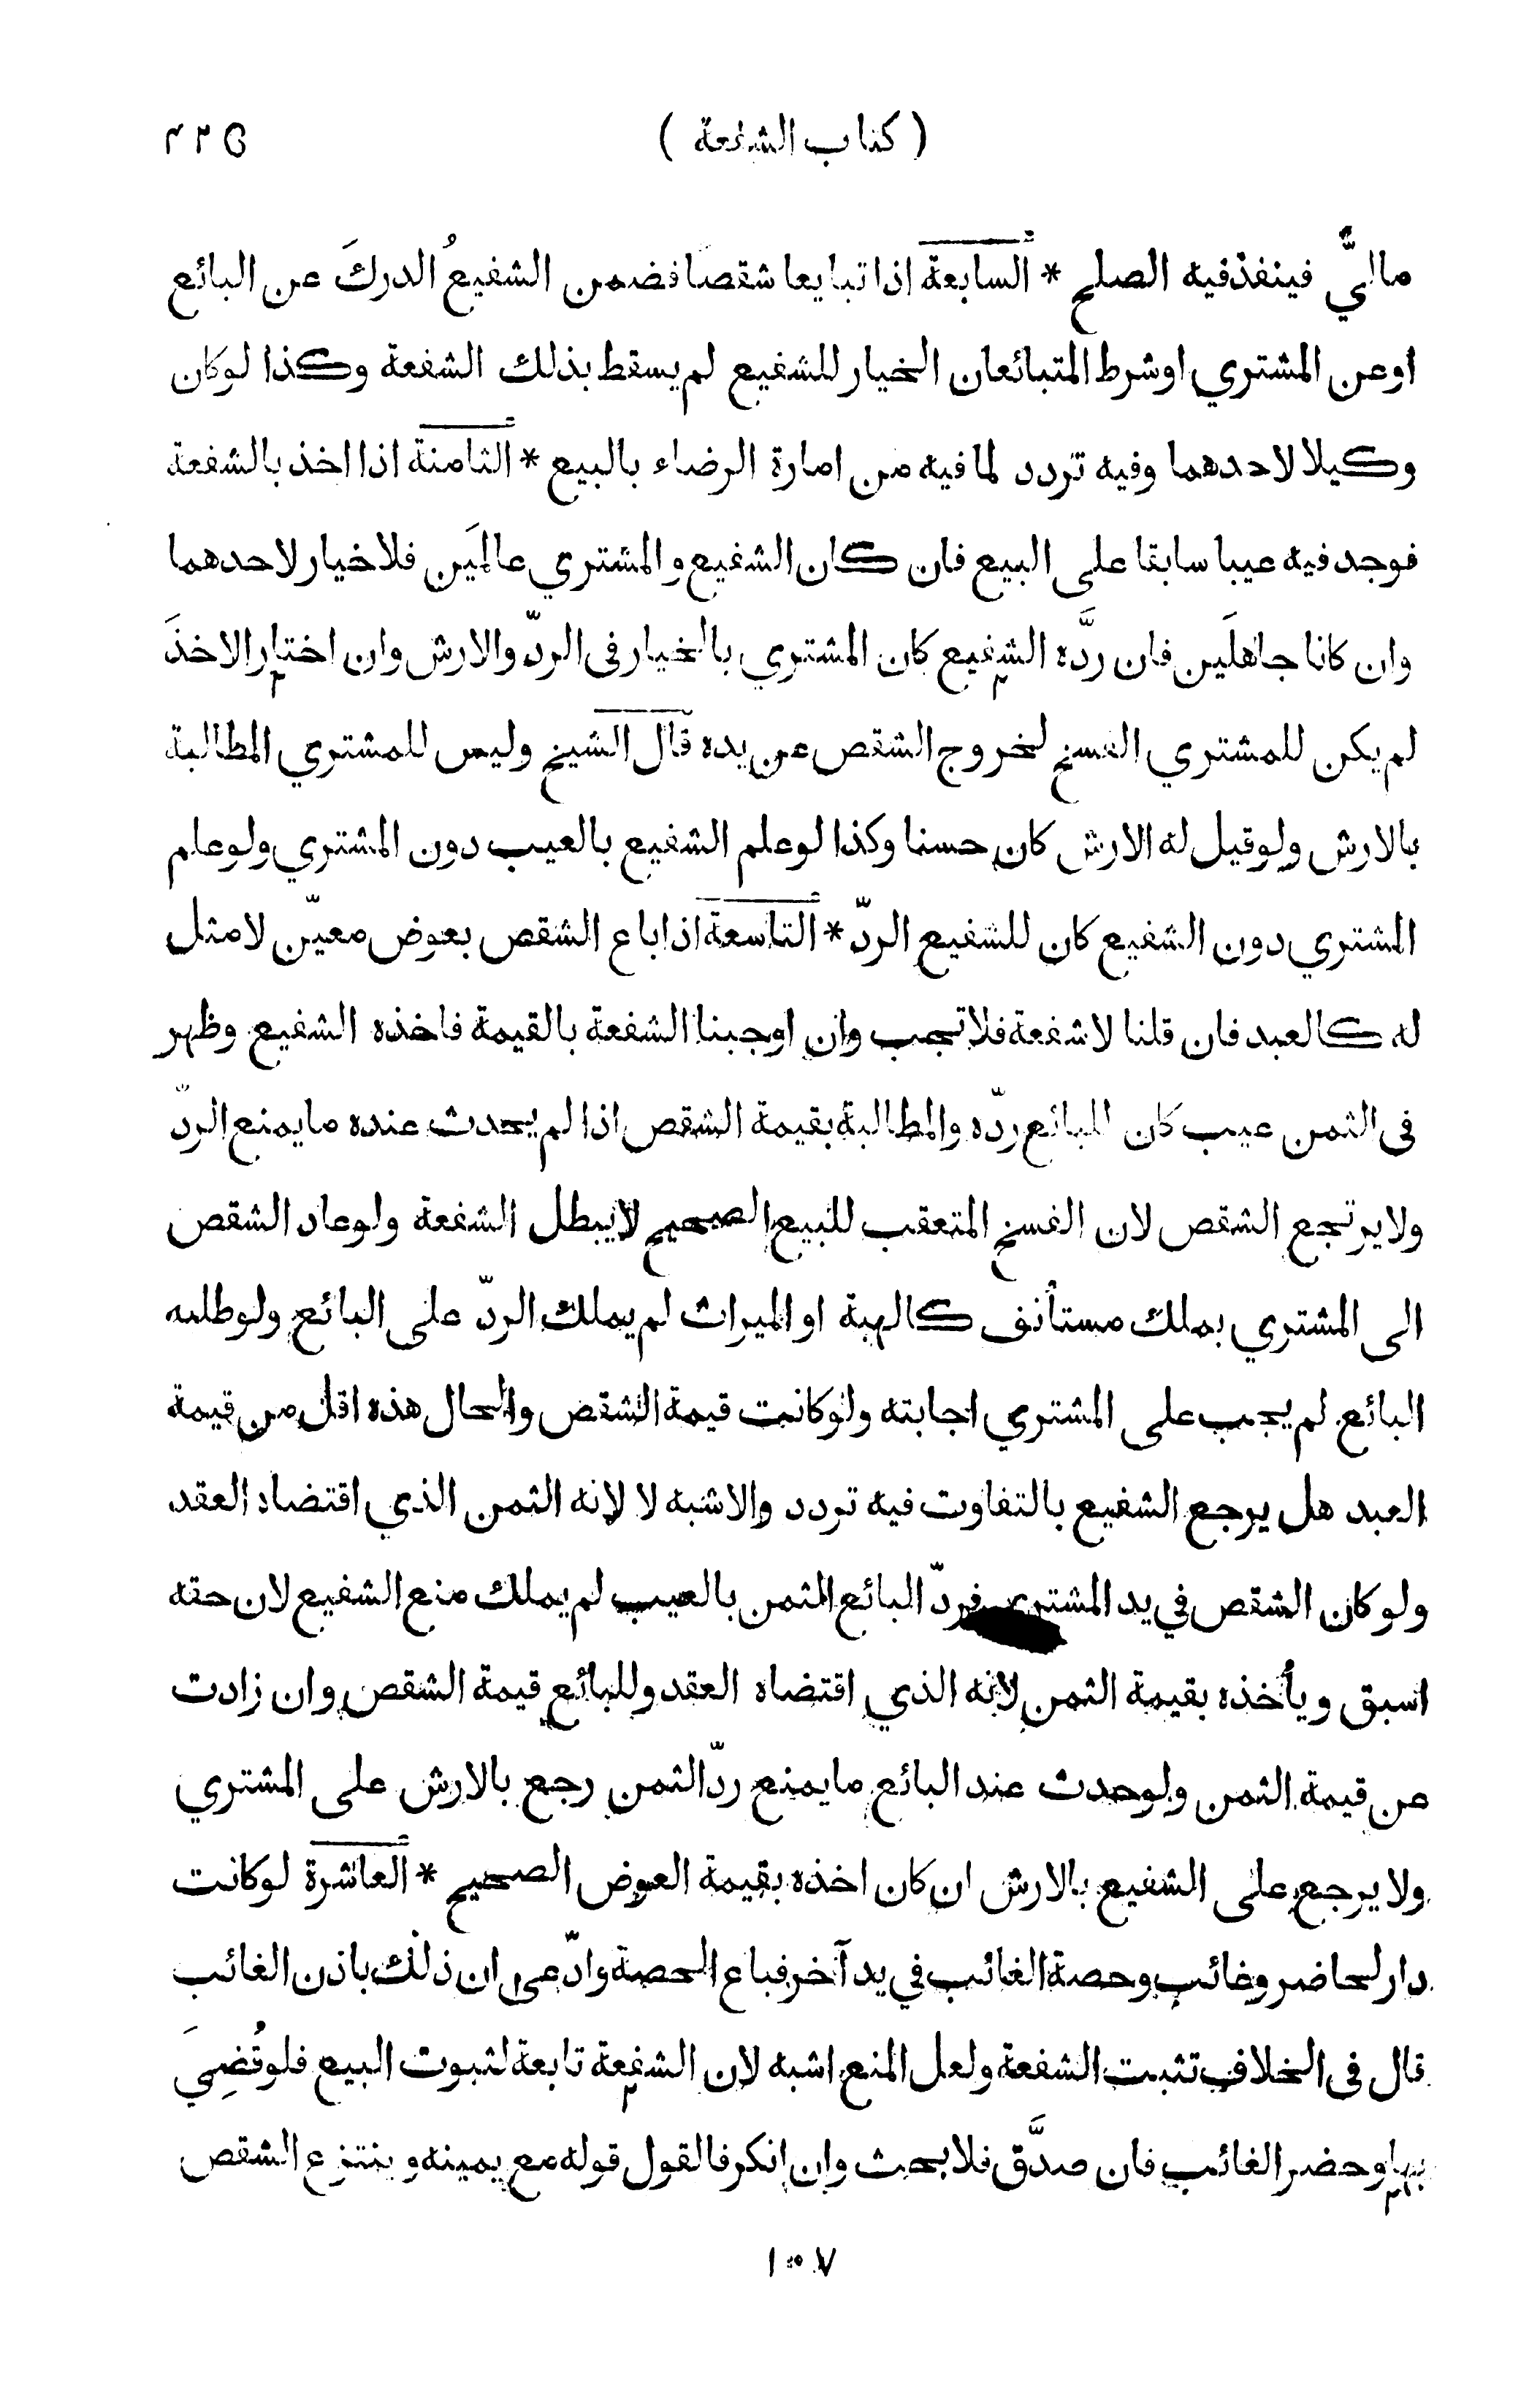 ( كتاب الشفعة ) ٤٢٥
ماليٌّ فينفذ فيه الصلح * السابعة اذا تبايعا شقصا فضمن الشفيعُ الدركَ عن البائع
او عن المشتري او شرط المتبائعان الخيار للشفيع لم يسقط بذلك الشفعة وكذا لو كان
وكيلا لاحدهما وفيه تردد لما فيه من امارة الرضاء بالبيع * الثامنة اذا اخذ بالشفعة
فوجد فيه عيبا سابقا على البيع فان كان الشفيع والمشتري عالمَين فلا خيار لاحدهما
وان كانا جاهلَين فان ردَّه الشفيع كان المشتري بالخيار فى الردّ والارش وان اختار الاخذَ
لم يكن للمشتري الفسخ لخروج الشقص عن يده قال الشيخ وليس للمشتري المطالبة
بالارش ولو قيل له الارش كان حسنا وكذا لو علم الشفيع بالعيب دون المشتري ولو علم
المشتري دون الشفيع كان للشفيع الردّ * التاسعة اذا باع الشقص بعوض معيّن لا مثل
له كالعبد فان قلنا لا شفعة فلا تجب وان اوجبنا الشفعة بالقيمة فاخذه الشفيع وظهر
فى الثمن عيب كان للبائع ردّه والمطالبة بقيمة الشقص اذا لم يحدث عنده ما يمنع الردّ
ولا يرتجع الشقص لان الفسخ المتعقب للبيع الصحيح لا يبطل الشفعة ولو عاد الشقص
الى المشتري بملك مستأنف كالهبة او الميراث لم يملك الردّ على البائع ولو طلبه
البائع لم يجب على المشتري اجابته ولو كانت قيمة الشقص والحال هذه اقل من قيمة
العبد هل يرجع الشفيع بالتفاوت فيه تردد والاشبه لا لانه الثمن الذي اقتضاه العقد
ولو كان الشقص في يد المشتري فردّ البائع الثمن بالعيب لم يملك منع الشفيع لان حقه
اسبق ويأخذه بقيمة الثمن لانه الذي اقتضاه العقد وللبائع قيمة الشقص وان زادت
عن قيمة الثمن ولو حدث عند البائع ما يمنع ردّ الثمن رجع بالارش على المشتري
ولا يرجع على الشفيع بالارش ان كان اخذه بقيمة العوض الصحيح * العاشرة لو كانت
دار لحاضر وغائب وحصة الغائب في يد آخر فباع الحصة وادّعى ان ذلك باذن الغائب
قال فى الخلاف تثبت الشفعة ولعل المنع اشبه لان الشفعة تابعة لثبوت البيع فلو قُضِيَ
بها وحضر الغائب فان صدَّق فلا بحث وان انكر فالقول قوله مع يمينه وينتزع الشقص
١٠٧